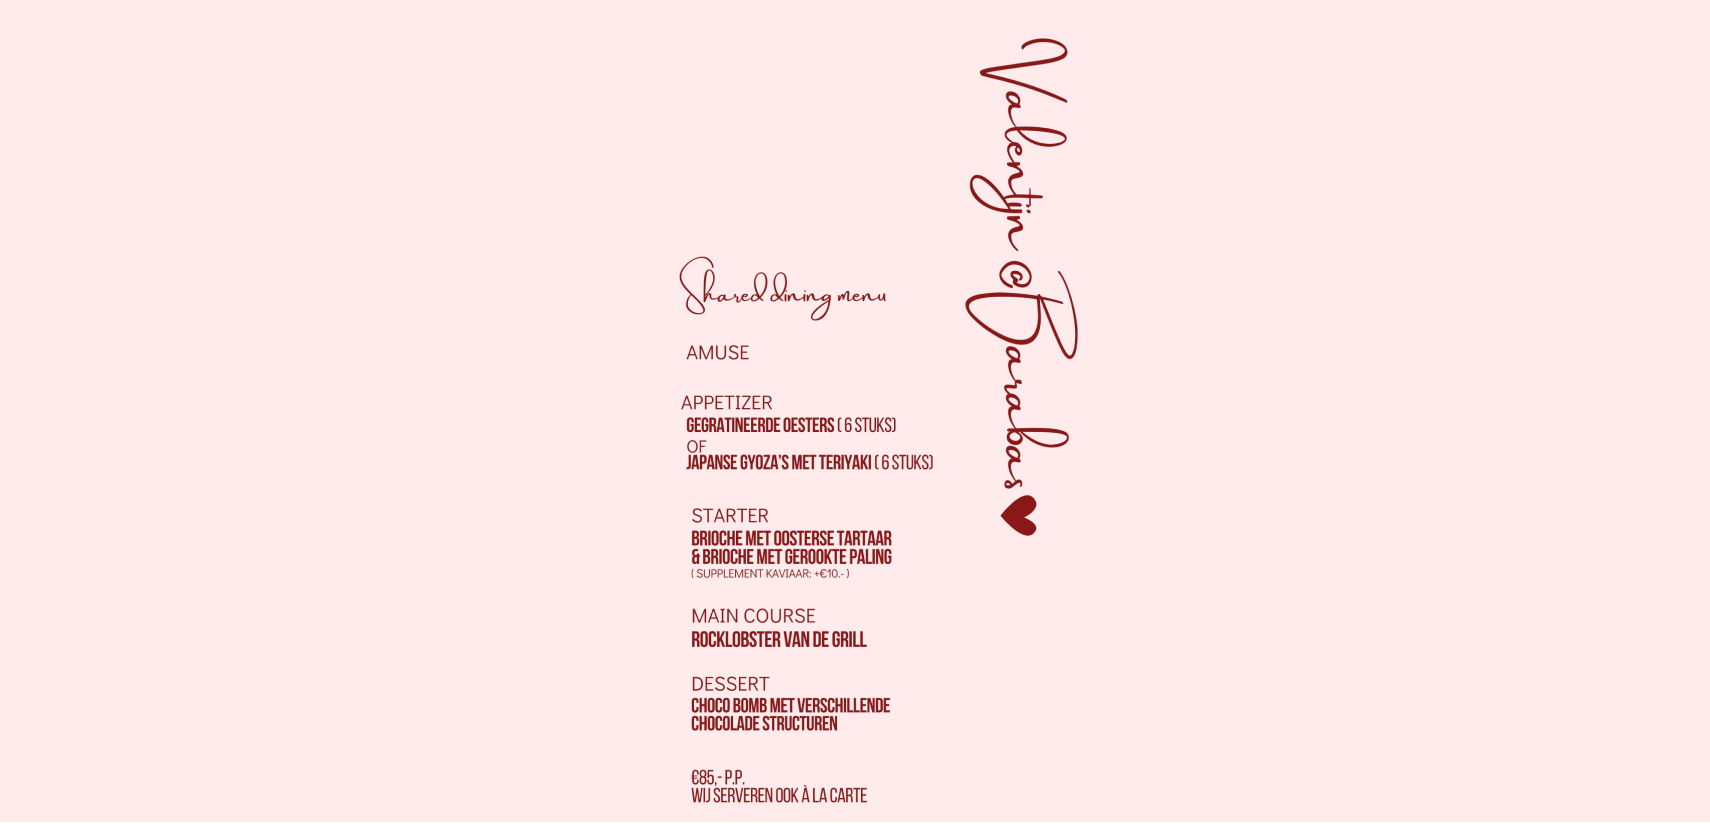 Valentijn @ Barabas
Shared dining menu
AMUSE
APPETIZER
GEGRATINEERDE OESTERS ( 6 STUKS)
OF
JAPANSE GYOZA'S MET TERIYAKI ( 6 STUKS)
STARTER
BRIOCHE MET OOSTERSE TARTAAR
& BRIOCHE MET GEROOKTE PALING
( SUPPLEMENT KAVIAAR: +€10.- )
MAIN COURSE
ROCKLOBSTER VAN DE GRILL
DESSERT
CHOCO BOMB MET VERSCHILLENDE
CHOCOLADE STRUCTUREN
€85,- P.P.
WIJ SERVEREN OOK À LA CARTE